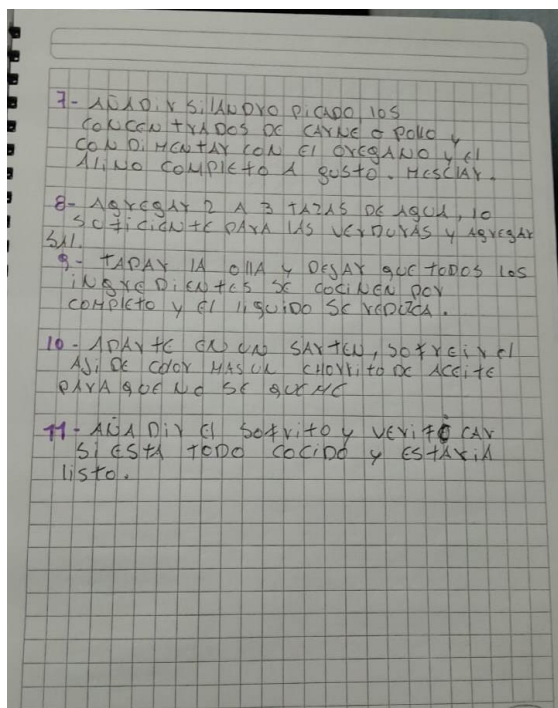 7- AÑADIR SILANDRO PICADO, LOS
CONCENTRADOS DE CARNE O POLLO Y
CONDIMENTAR CON EL OREGANO Y EL
ALINO COMPLETO A GUSTO. MESCLAR.
8- AGREGAR 2 A 3 TAZAS DE AGUA, LO
SOFICIENTE PARA LAS VERDURAS Y AGREGAR
SAL.
9- TAPAR LA OLLA Y DEJAR QUE TODOS LOS
INGREDIENTES SE COCINEN POR
COMPLETO Y EL LIGUIDO SE REDUZCA.
10- APARTE EN UN SARTEN, SOFREIR EL
AJI DE COLOR MAS UN CHORRITO DE ACEITE
PARA QUE NO SE QUEME
11- AÑADIR EL SOFRITO Y VERIFICAR
SI ESTA TODO COCIDO Y ESTARIA
LISTO.